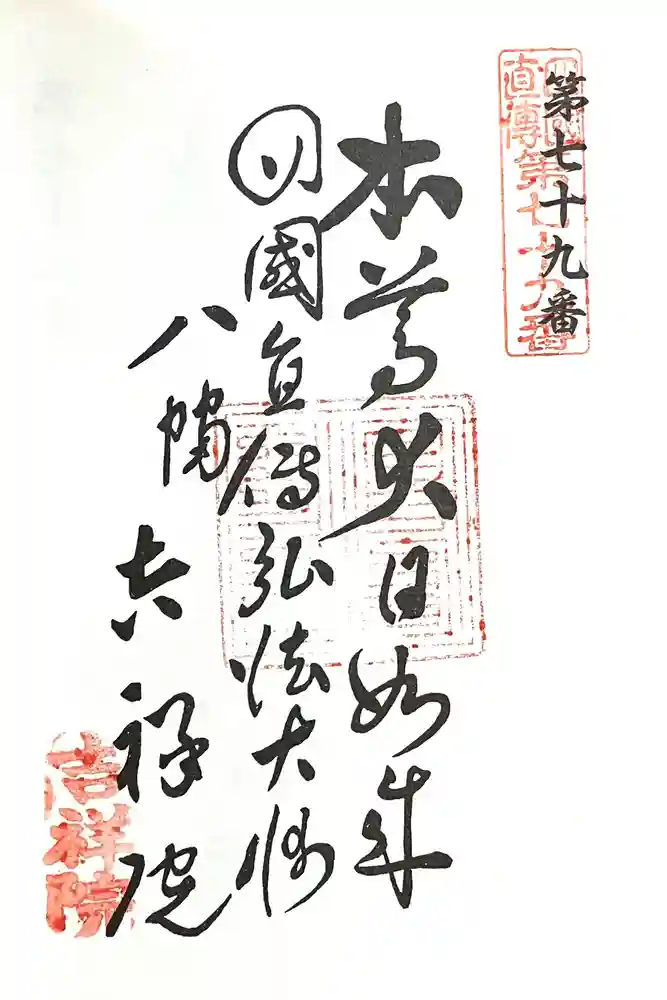 第七十九番
四國
直傳
第七十九番
本尊大日如来
四國直傳弘法大師
八幡
吉祥院
吉祥院